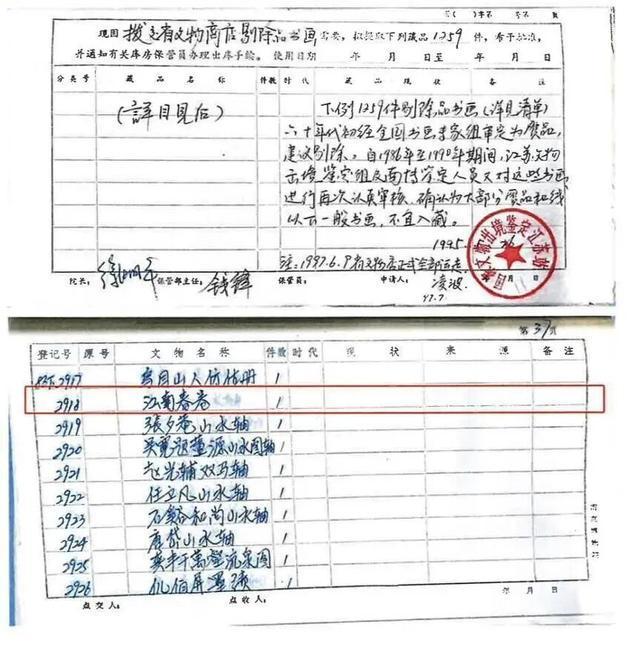 现因 拨交省文物商店剔除品书画 需要，拟提取下列藏品1259件，希予批准，
并通知有关库房保管员办理出库手续。使用日期 年 月 日至 年 月 日
分类号 藏品名称 件数 时代 藏品现状 备注
(詳目見后)
下例1259件剔除品书画(详见清单)
六十年代初经全国书画专家组审定为贋品,
建议剔除。自1986年至1990年期间,江苏文物
出境鉴定组及南博鉴定人员又对这些书画
进行再次认真审核、确认为大部分贋品和线
以下一般书画,不宜入藏。
1995
国家文物出境鉴定江苏站
注:1997.6.9省文物店正式全部运走
院长: 徐湖平 保管部主任: 钱锋 保管员: 申请人: 凌波
97.7.
第37页
登记号 原号 文物名称 件数 时代 现状 来源 备注
2917 册 1
2918 江南春卷 1
2919 張夕菴山水轴 1
2920 吴寬题董源山水图轴 1
2921 双马轴 1
2922 任立凡山水轴 1
2923 石谿和尚山水轴 1
2924 唐岱山水轴 1
2925 千萬壑流泉图 1
2926 仉伯屏墨 1
点交人: 点收人: 年 月 日